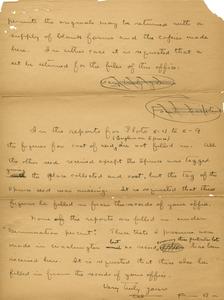 permit the originals may be returned with a
supply of blank forms and the copies made
here. In either case it is requested that a
set be returned for the files of this office.
In the reports for Plots
the figures for cost of seed, are not filled in. All
the other seed received except the Spruce was tagged
the place collected and cost, but the tag of the
Spruce seed was missing. It is requested that these
figures be filled in from the records of your office.
None of the reports are filled in under
"Germination percent." These tests were
made in Washington but no record has
been received here. It is requested that these also be
filled in from the records of your office.
Very truly yours